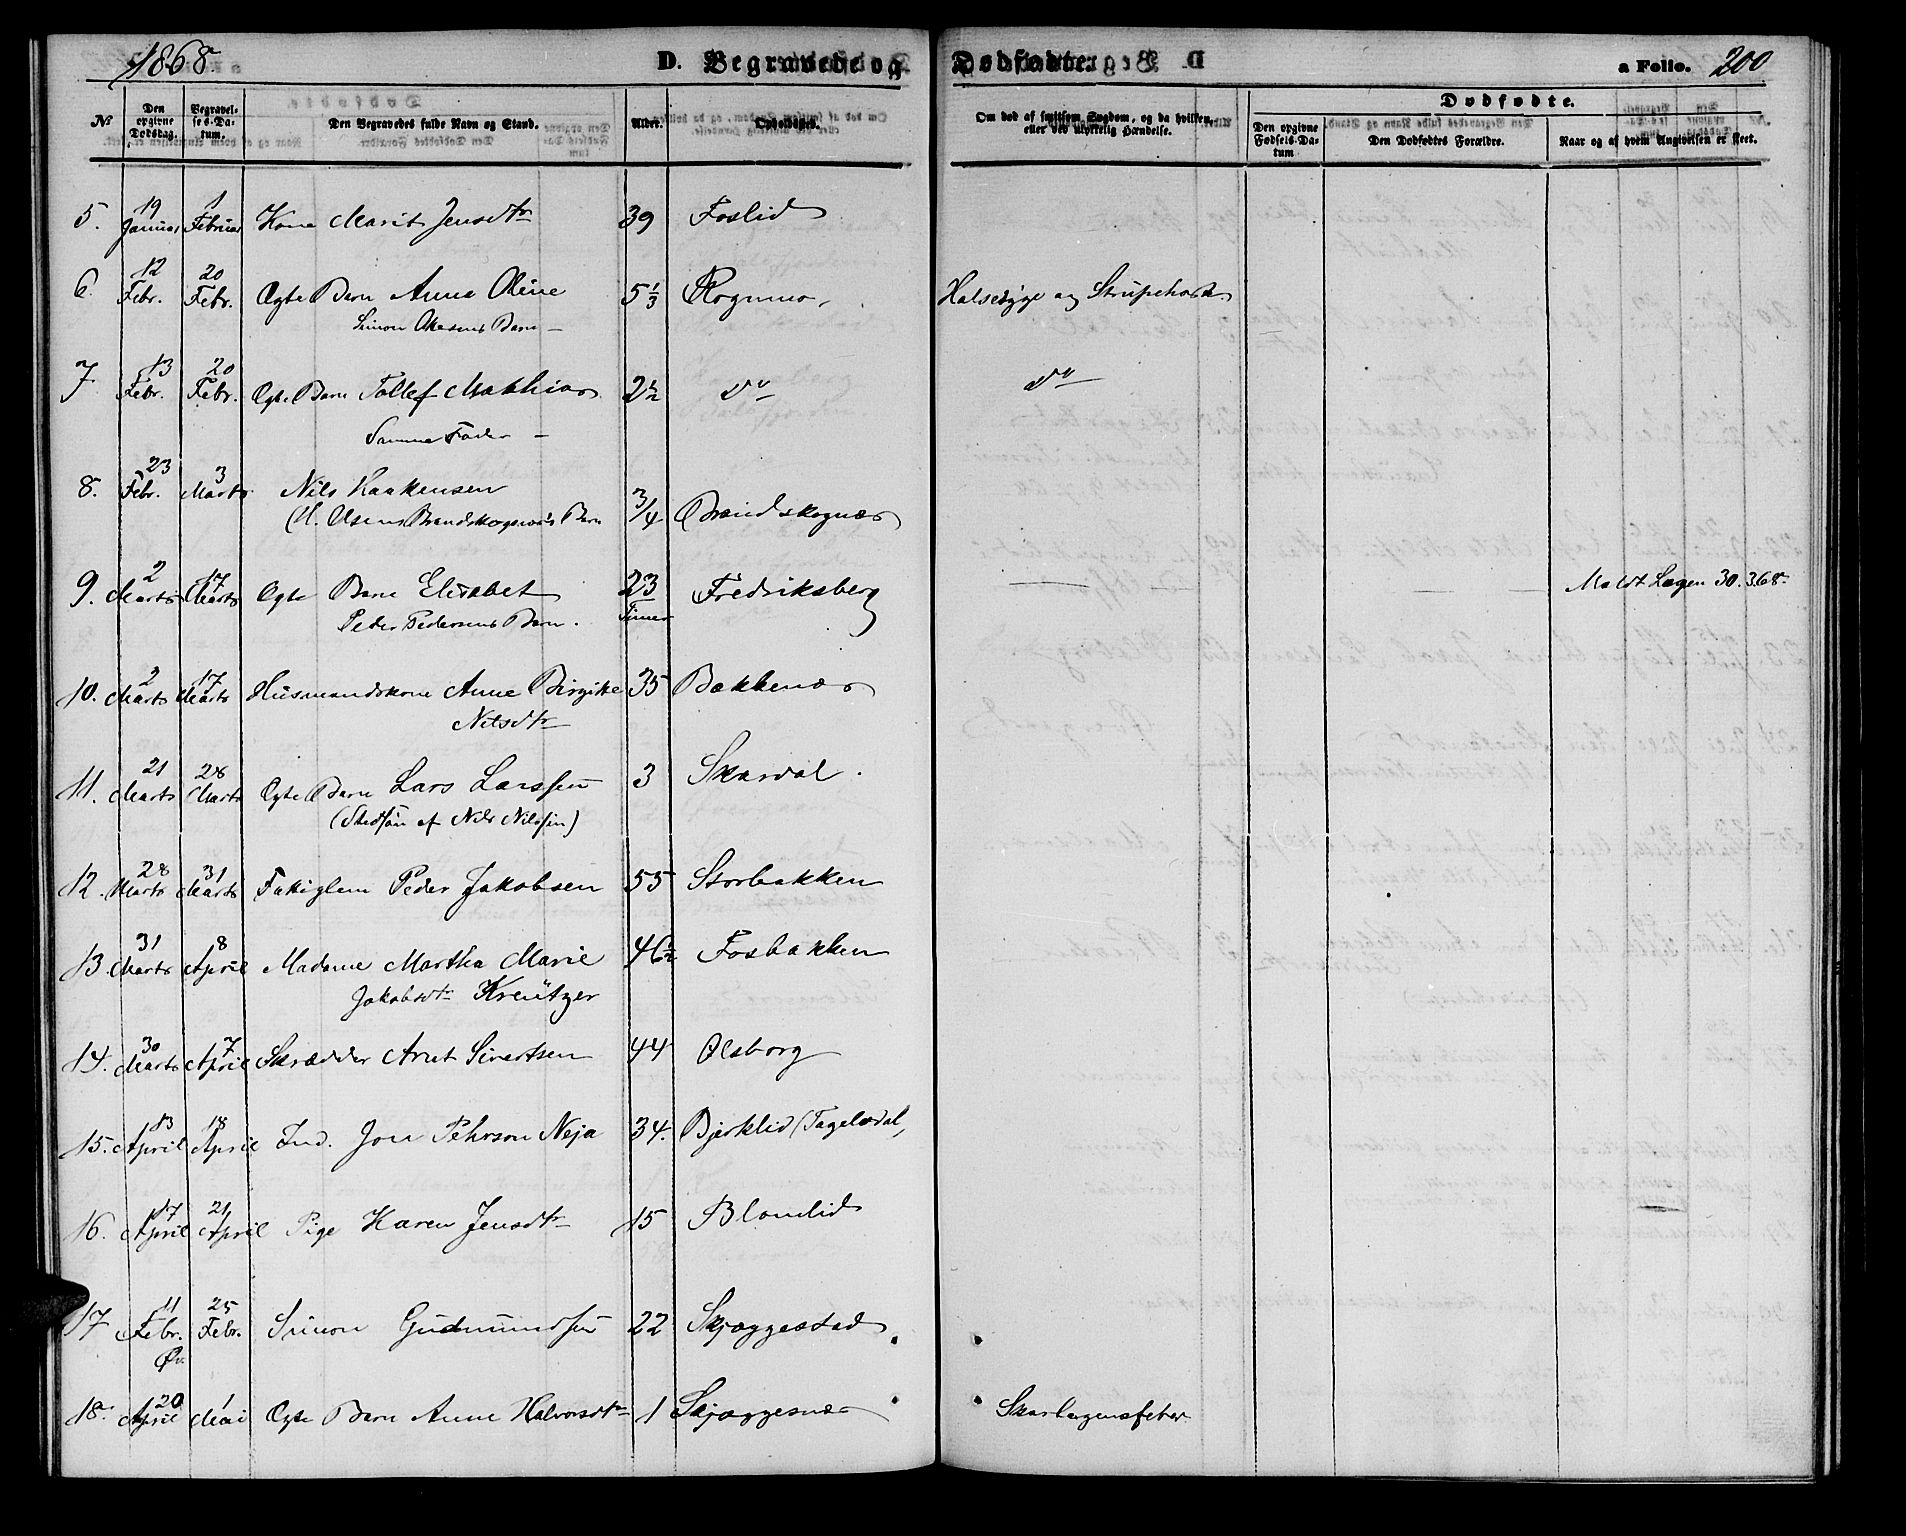 1868.
D. Begravede og Dødfødte.
a Folio. 200
Dødfødte.
No Den opgivne Dødsdag. Begravelses-Datum. Den Begravedes fulde Navn og Stand. Alder. Opholdssted. Om død af smitsom Sygdom, og da hvilken, eller ved ulykkelig Hændelse. Den opgivne Fødsels-Datum Den Dødfødtes Forældre. Naar og af hvem Angivelsen er skeet.
5. 19 Januar 1 Februar Kone Marit Jensdtr 39 Foslid
6. 12 Febr. 20 Febr. Ægte Barn Anna Oline 5 1/3 Rognmo, Halsesyge og Strupehoste
Simon Olsens Barn —
7 13 Febr. 20 Febr. Ægte Barn Tollef Mathias 2½ do do
Samme Fader —
8. 23 Febr. 3 Marts Nils Haakensen 3/4 Brandskognæs
(H. Olsens Brandskognæs Barn
9. 2 Marts 17 Marts Ægte Barn Elisabet 23 Timer Fredriksberg — — — — Meldt Lægen 30. 3 68.
Peder Pedersens Barn.
10. 2 Marts 17 Marts Husmandskone Anne Birgitte 35 Bakkenæs
Nilsdtr
11. 21 Marts 28 Marts Ægte Barn Lars Larssen 3 Skardal.
(Stedsøn af Nils Nilssen)
12. 28 Marts 31 Marts Fattiglem Peder Jakobsen 55 Storbakken
13 31 Marts 8 April Madame Martha Marie 46½ Fosbakken
Jakobsdtr Kreützer
14. 30 Marts 7 April Skrædder Arnt Sivertsen 44 Olsborg
15. 13 April 18 April Ind. Jon Pehrson Neja 34. Bjerklid (Tageladal,
16. 17 April 21 April Pige Karen Jensdtr 15 Blomlid
17 11 Febr. 25 Febr. Simon Gudmundsen 22 Skjæggestad
18. 20 April 1 Mai Ægte Barn Anne Halvorsdtr 1 Skjæggesnæs Skarlagensfeber